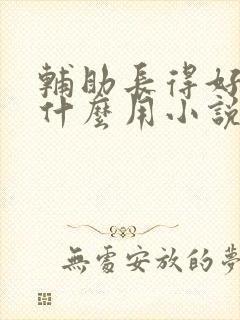 輔助長得好
什麼用小說
無處安放的夢